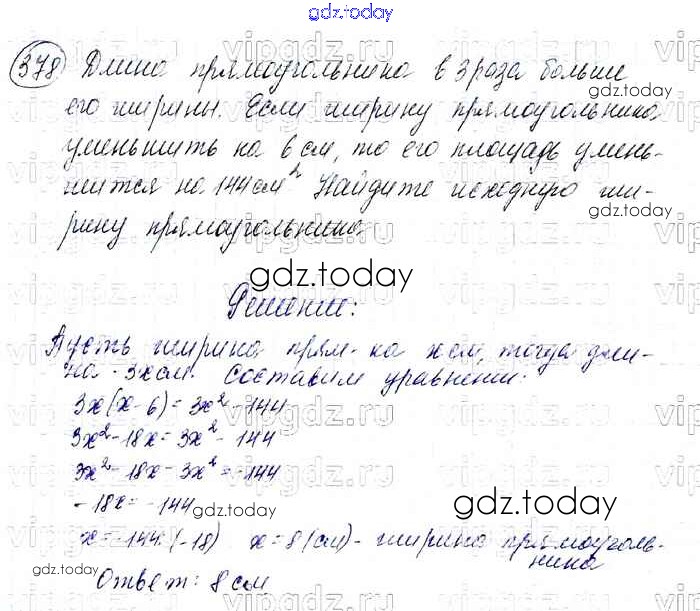 gdz.today
378 Длина прямоугольника в 3 раза больше
gdz.today
его ширины. Если ширину прямоугольника
уменьшить на 6 см, то его площадь умень-
шится на 144 см². Найдите исходную ши-
gdz.today
рину прямоугольника.
gdz.today
Решение:
Пусть ширина прям-ка x см, тогда дли-
на - 3x см. Составим уравнение:
gdz.today
3x(x-6) = 3x² - 144
3x² - 18x = 3x² - 144
3x² - 18x - 3x² = -144
-18x = -144
gdz.today
gdz.today
x = -144 : (-18) x = 8 (см) - ширина прямоуголь-
ника
gdz.today
Ответ: 8 см
gdz.today